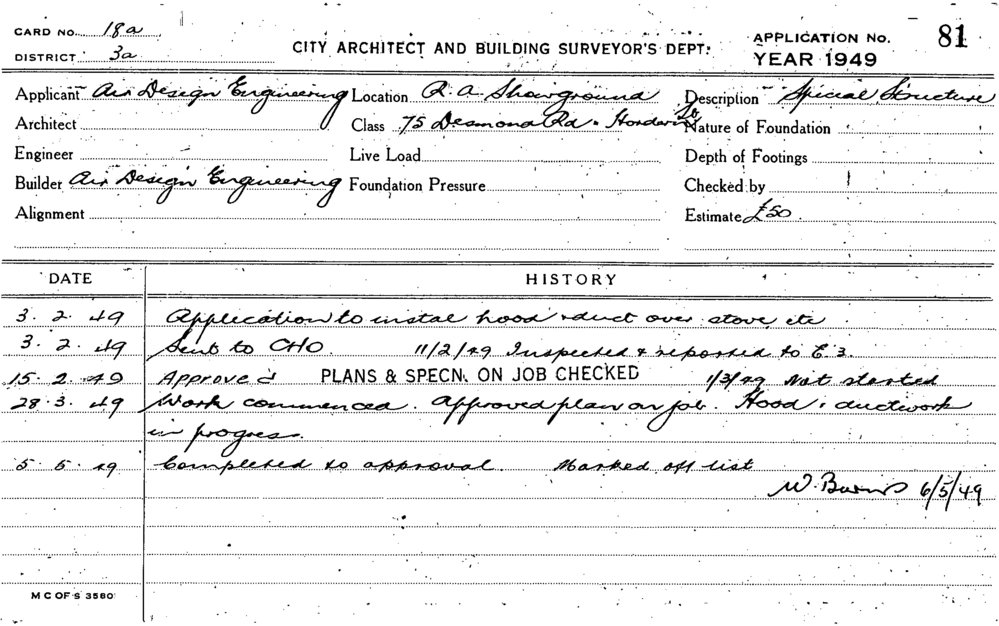 CARD NO. 18a
DISTRICT 3a
CITY ARCHITECT AND BUILDING SURVEYOR'S DEPT.
APPLICATION NO. 81
YEAR 1949
Applicant Air Design Engineering Location R. A. Showground Description Special Structure
Architect Class 75 Desmond Rd. Hordern St. Nature of Foundation
Engineer Live Load Depth of Footings
Builder Air Design Engineering Foundation Pressure Checked by
Alignment Estimate £50
DATE HISTORY
3. 2. 49 Application to instal hood & duct over stove etc
3. 2. 49 Sent to CHO. 11/2/49 Inspected & reported to E 3.
15. 2. 49 Approved PLANS & SPECN. ON JOB CHECKED 1/3/49 Not started
28. 3. 49 Work commenced. Approved plan on job. Hood & ductwork
in progress.
5. 5. 49 Completed to approval. Marked off list
W. Burns 6/5/49
M C OF S 3580